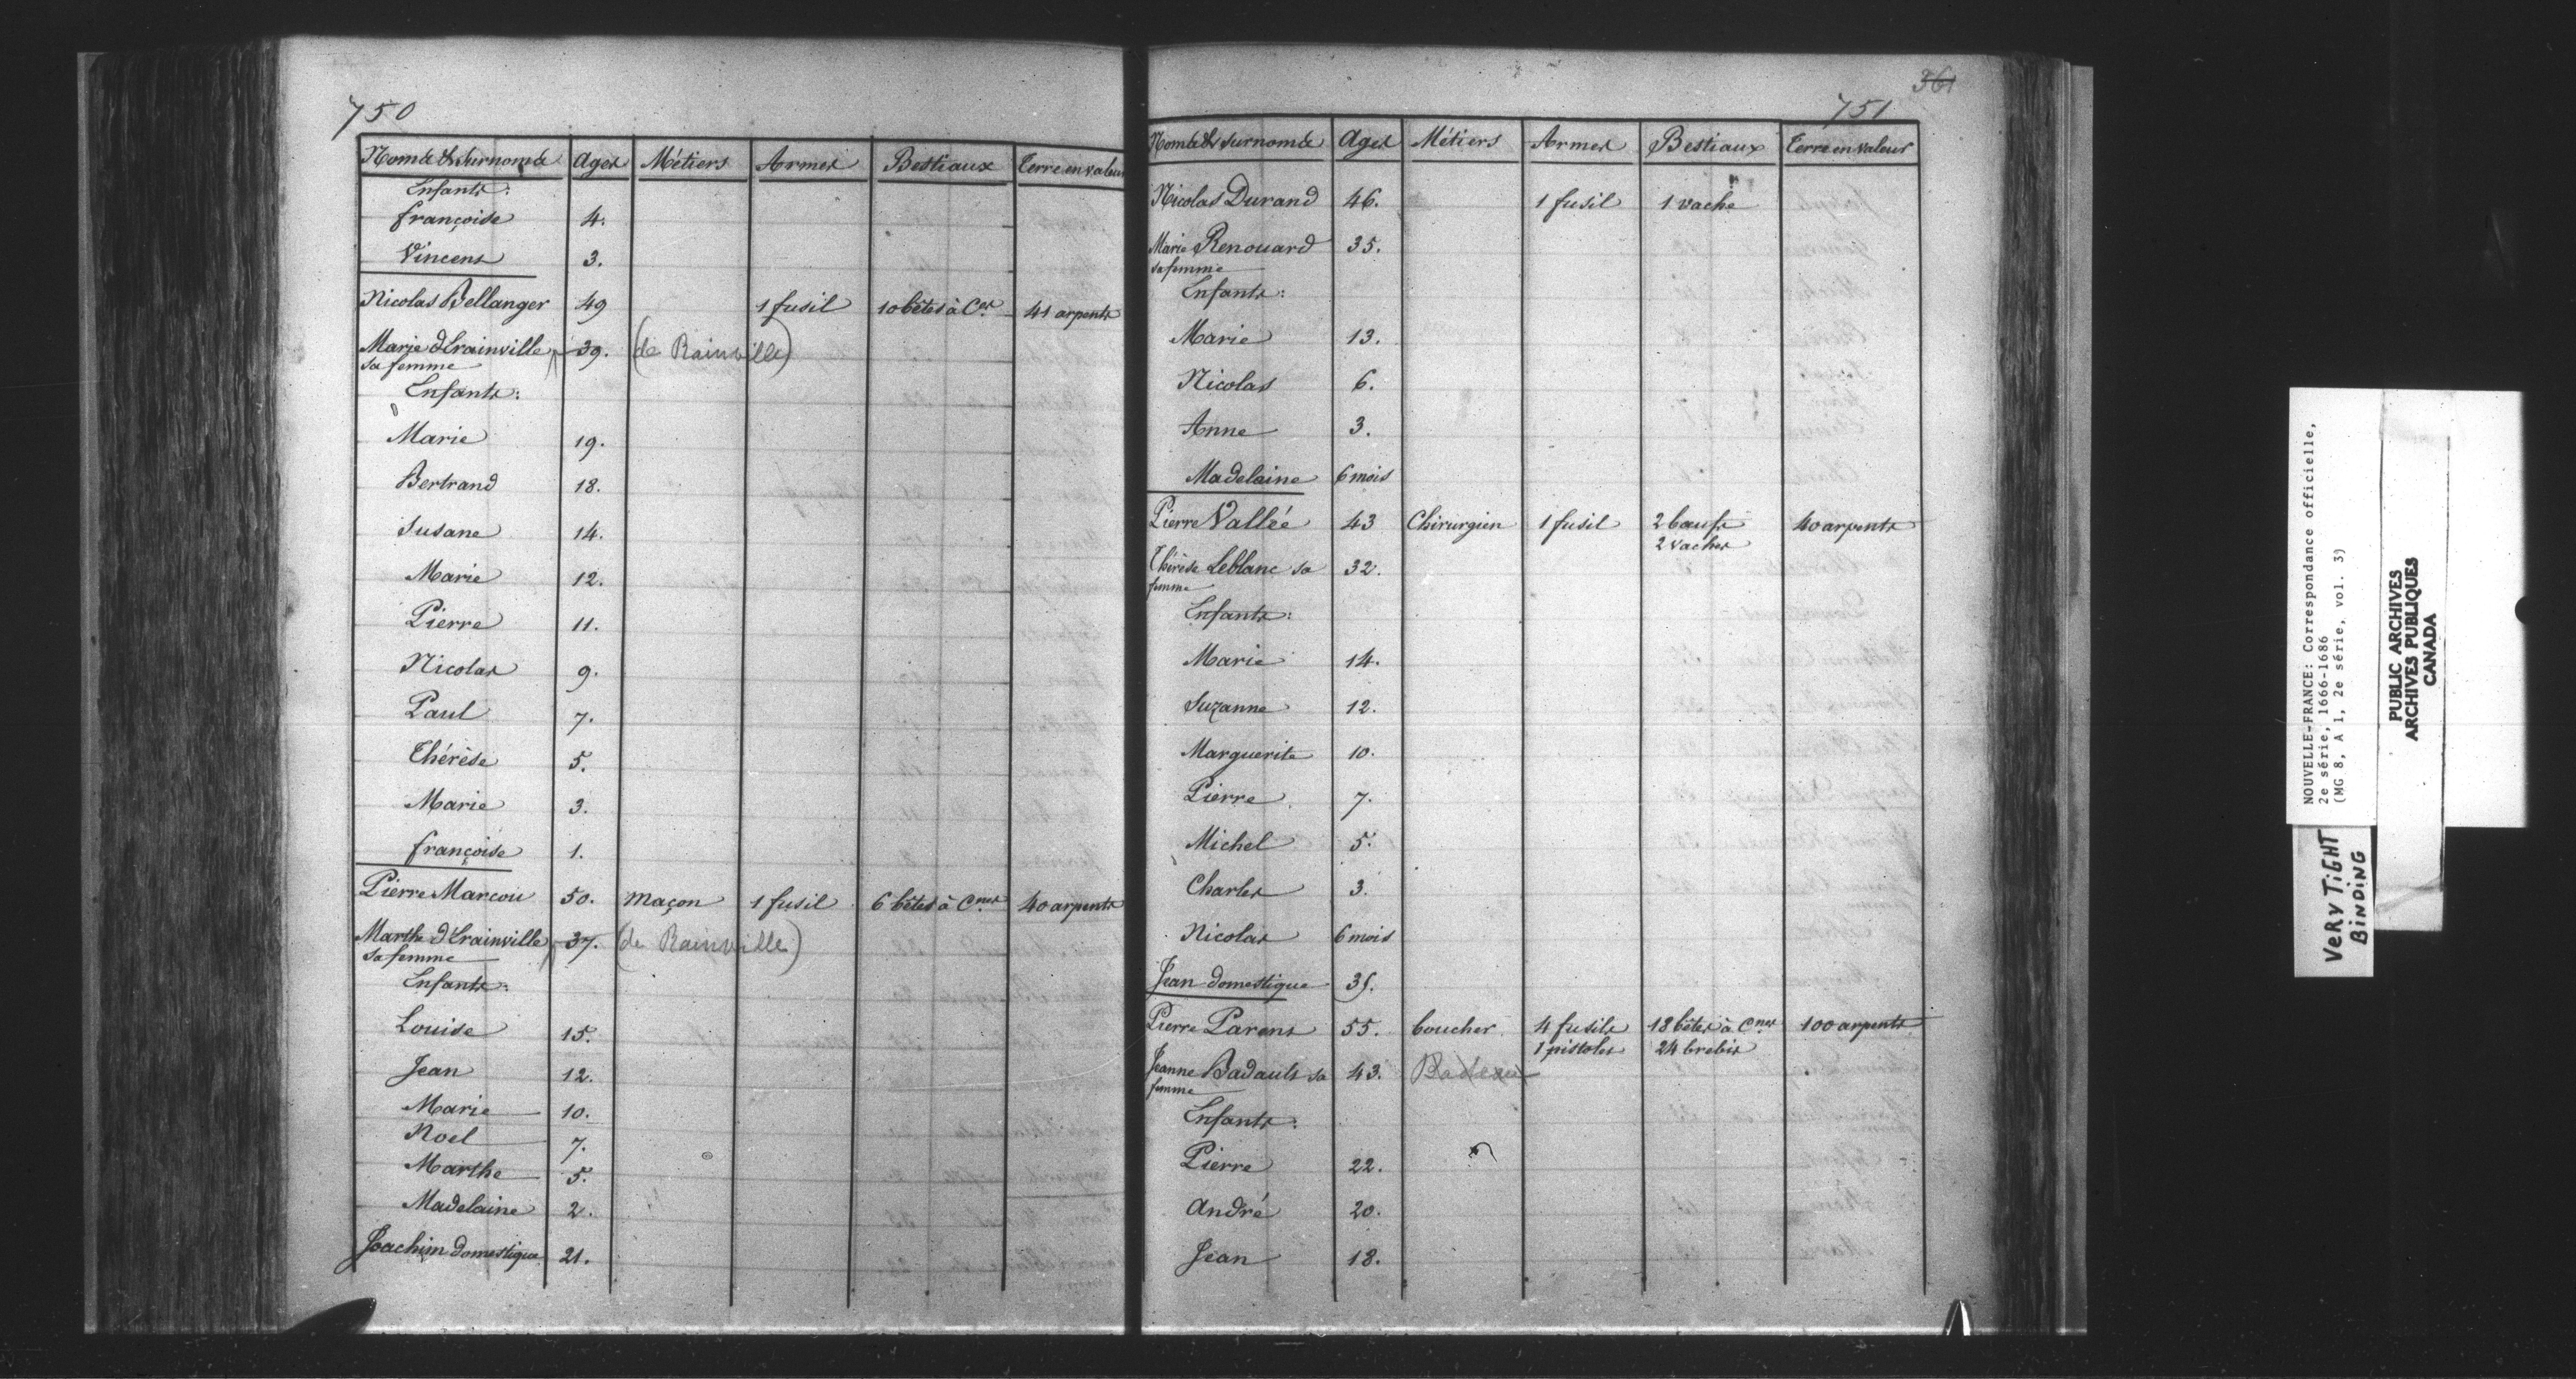 750
Noms & surnoms Ages Métiers Armes Bestiaux Terre en valeur
Enfants:
françoise 4.
Vincens 3.
Nicolas Bellanger 49 1 fusil 10 bêtes à Ces 41 arpents
Marie d'Erainville 39. (de Rainville)
sa femme
Enfants:
Marie 19.
Bertrand 18.
Susane 14.
Marie 12.
Pierre 11.
Nicolas 9.
Paul 7.
Thérèse 5.
Marie 3.
françoise 1.
Pierre Marcou 50. maçon 1 fusil 6 bêtes à Cnes 40 arpents
Marthe d'Erainville 37. (de Rainville)
sa femme
Enfants:
Louise 15.
Jean 12.
Marie 10.
Noel 7.
Marthe 5.
Madelaine 2.
Joachim domestique 21.
361
751
Noms & surnoms Ages Métiers Armes Bestiaux Terre en valeur
Nicolas Durand 46. 1 fusil 1 vache
Marie Renouard 35.
sa femme
Enfants:
Marie 13.
Nicolas 6.
Anne 3.
Madelaine 6 mois
Pierre Vallée 43 Chirurgien 1 fusil 2 bœufs 40 arpents
2 vaches
Thérèse Leblanc sa 32.
femme
Enfants:
Marie 14.
Suzanne 12.
Marguerite 10.
Pierre 7.
Michel 5.
Charles 3.
Nicolas 6 mois
Jean domestique 35.
Pierre Parens 55. boucher 4 fusils 18 bêtes à Cnes 100 arpents
1 pistolet 24 brebis
Jeanne Badault sa 43. Badeau
femme
Enfants:
Pierre 22.
André 20.
Jean 18.
NOUVELLE-FRANCE: Correspondance officielle,
2e série, 1666-1686
(MG 8, A 1, 2e série, vol. 3)
PUBLIC ARCHIVES
ARCHIVES PUBLIQUES
CANADA
VERY TIGHT
BINDING